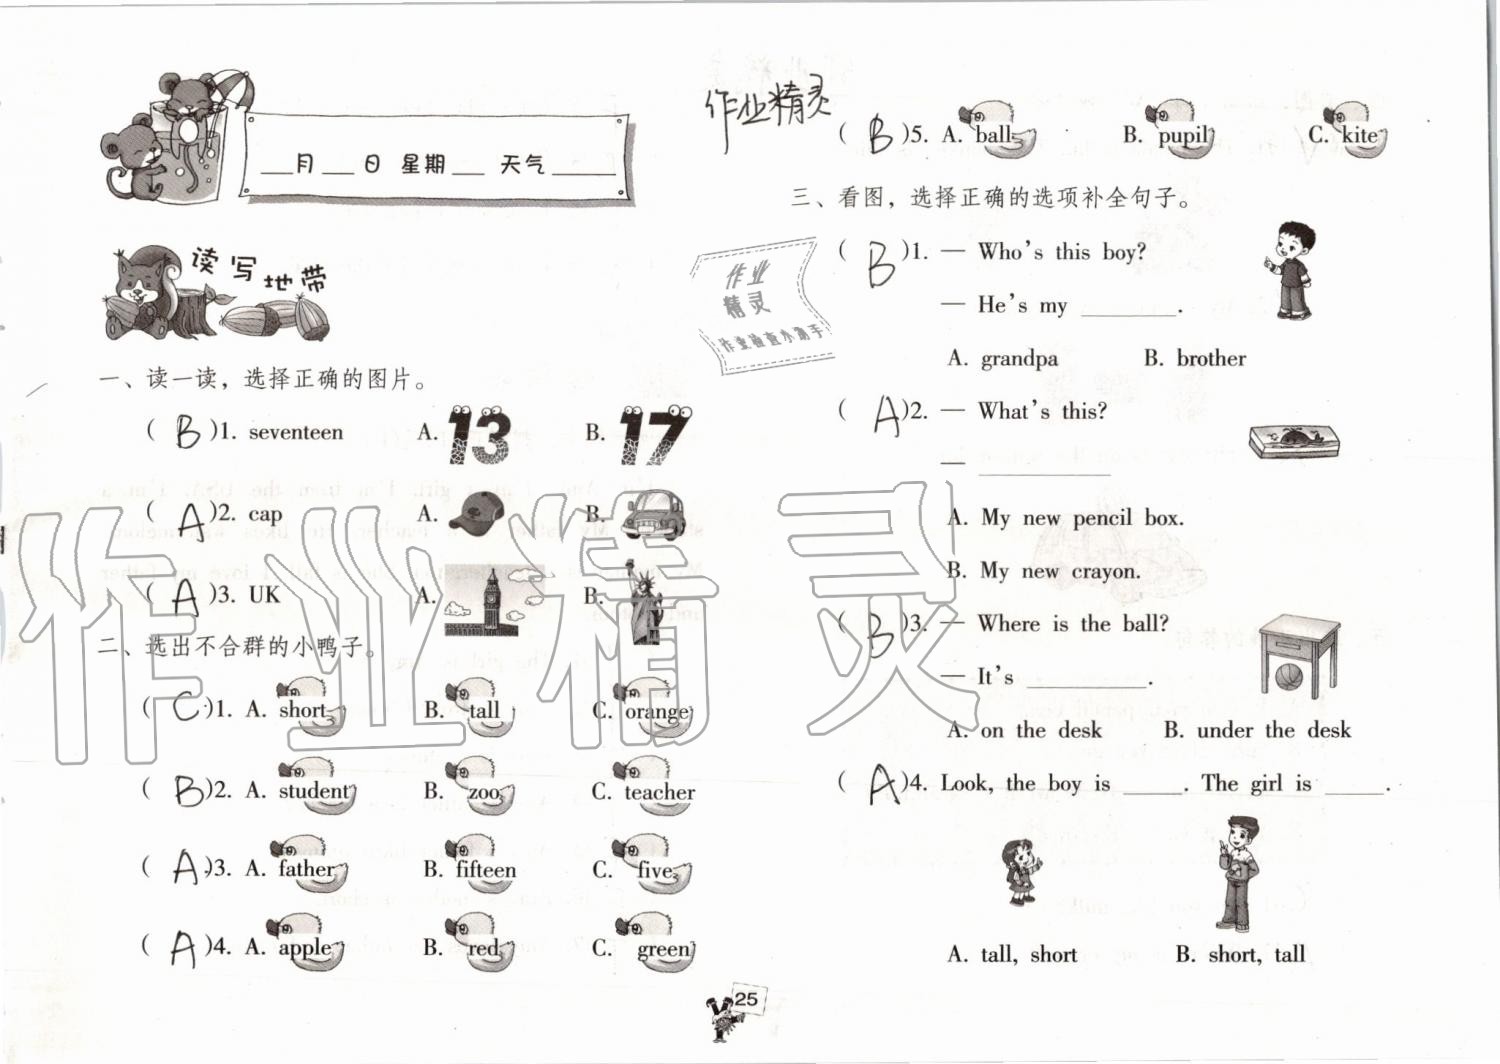 ___月 ___日 星期___ 天气______
读写地带
一、读一读，选择正确的图片。
( B )1. seventeen A. 13 B. 17
( A )2. cap A. B.
( A )3. UK A. B.
二、选出不合群的小鸭子。
( C )1. A. short B. tall C. orange
( B )2. A. student B. zoo C. teacher
( A )3. A. father B. fifteen C. five
( A )4. A. apple B. red C. green
作业精灵
( B )5. A. ball B. pupil C. kite
三、看图，选择正确的选项补全句子。
( B )1. — Who's this boy?
— He's my ________.
A. grandpa B. brother
( A )2. — What's this?
— ___________
A. My new pencil box.
B. My new crayon.
( B )3. — Where is the ball?
— It's __________.
A. on the desk B. under the desk
( A )4. Look, the boy is _____. The girl is _____.
A. tall, short B. short, tall
作业
精灵
作业检查小帮手
作业精灵
25